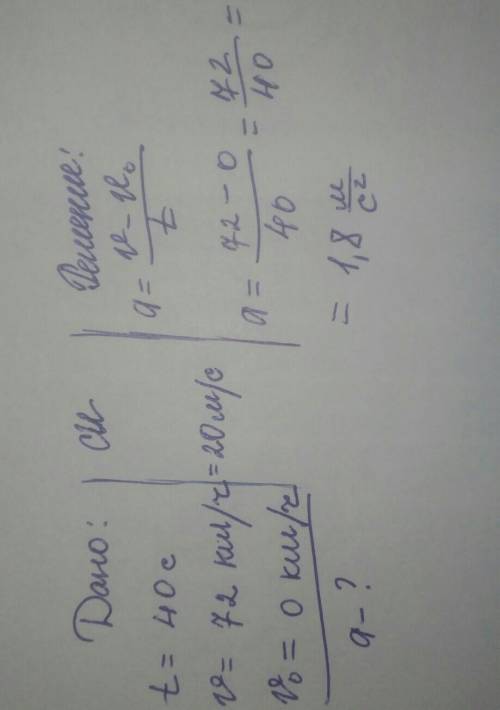 Дано:
t = 40 с
v = 72 км/ч
v₀ = 0 км/ч
a - ?
СИ
= 20 м/с
Решение:
a = (v - v₀)/t
a = (72 - 0)/40 = 72/40 =
= 1,8 м/с²